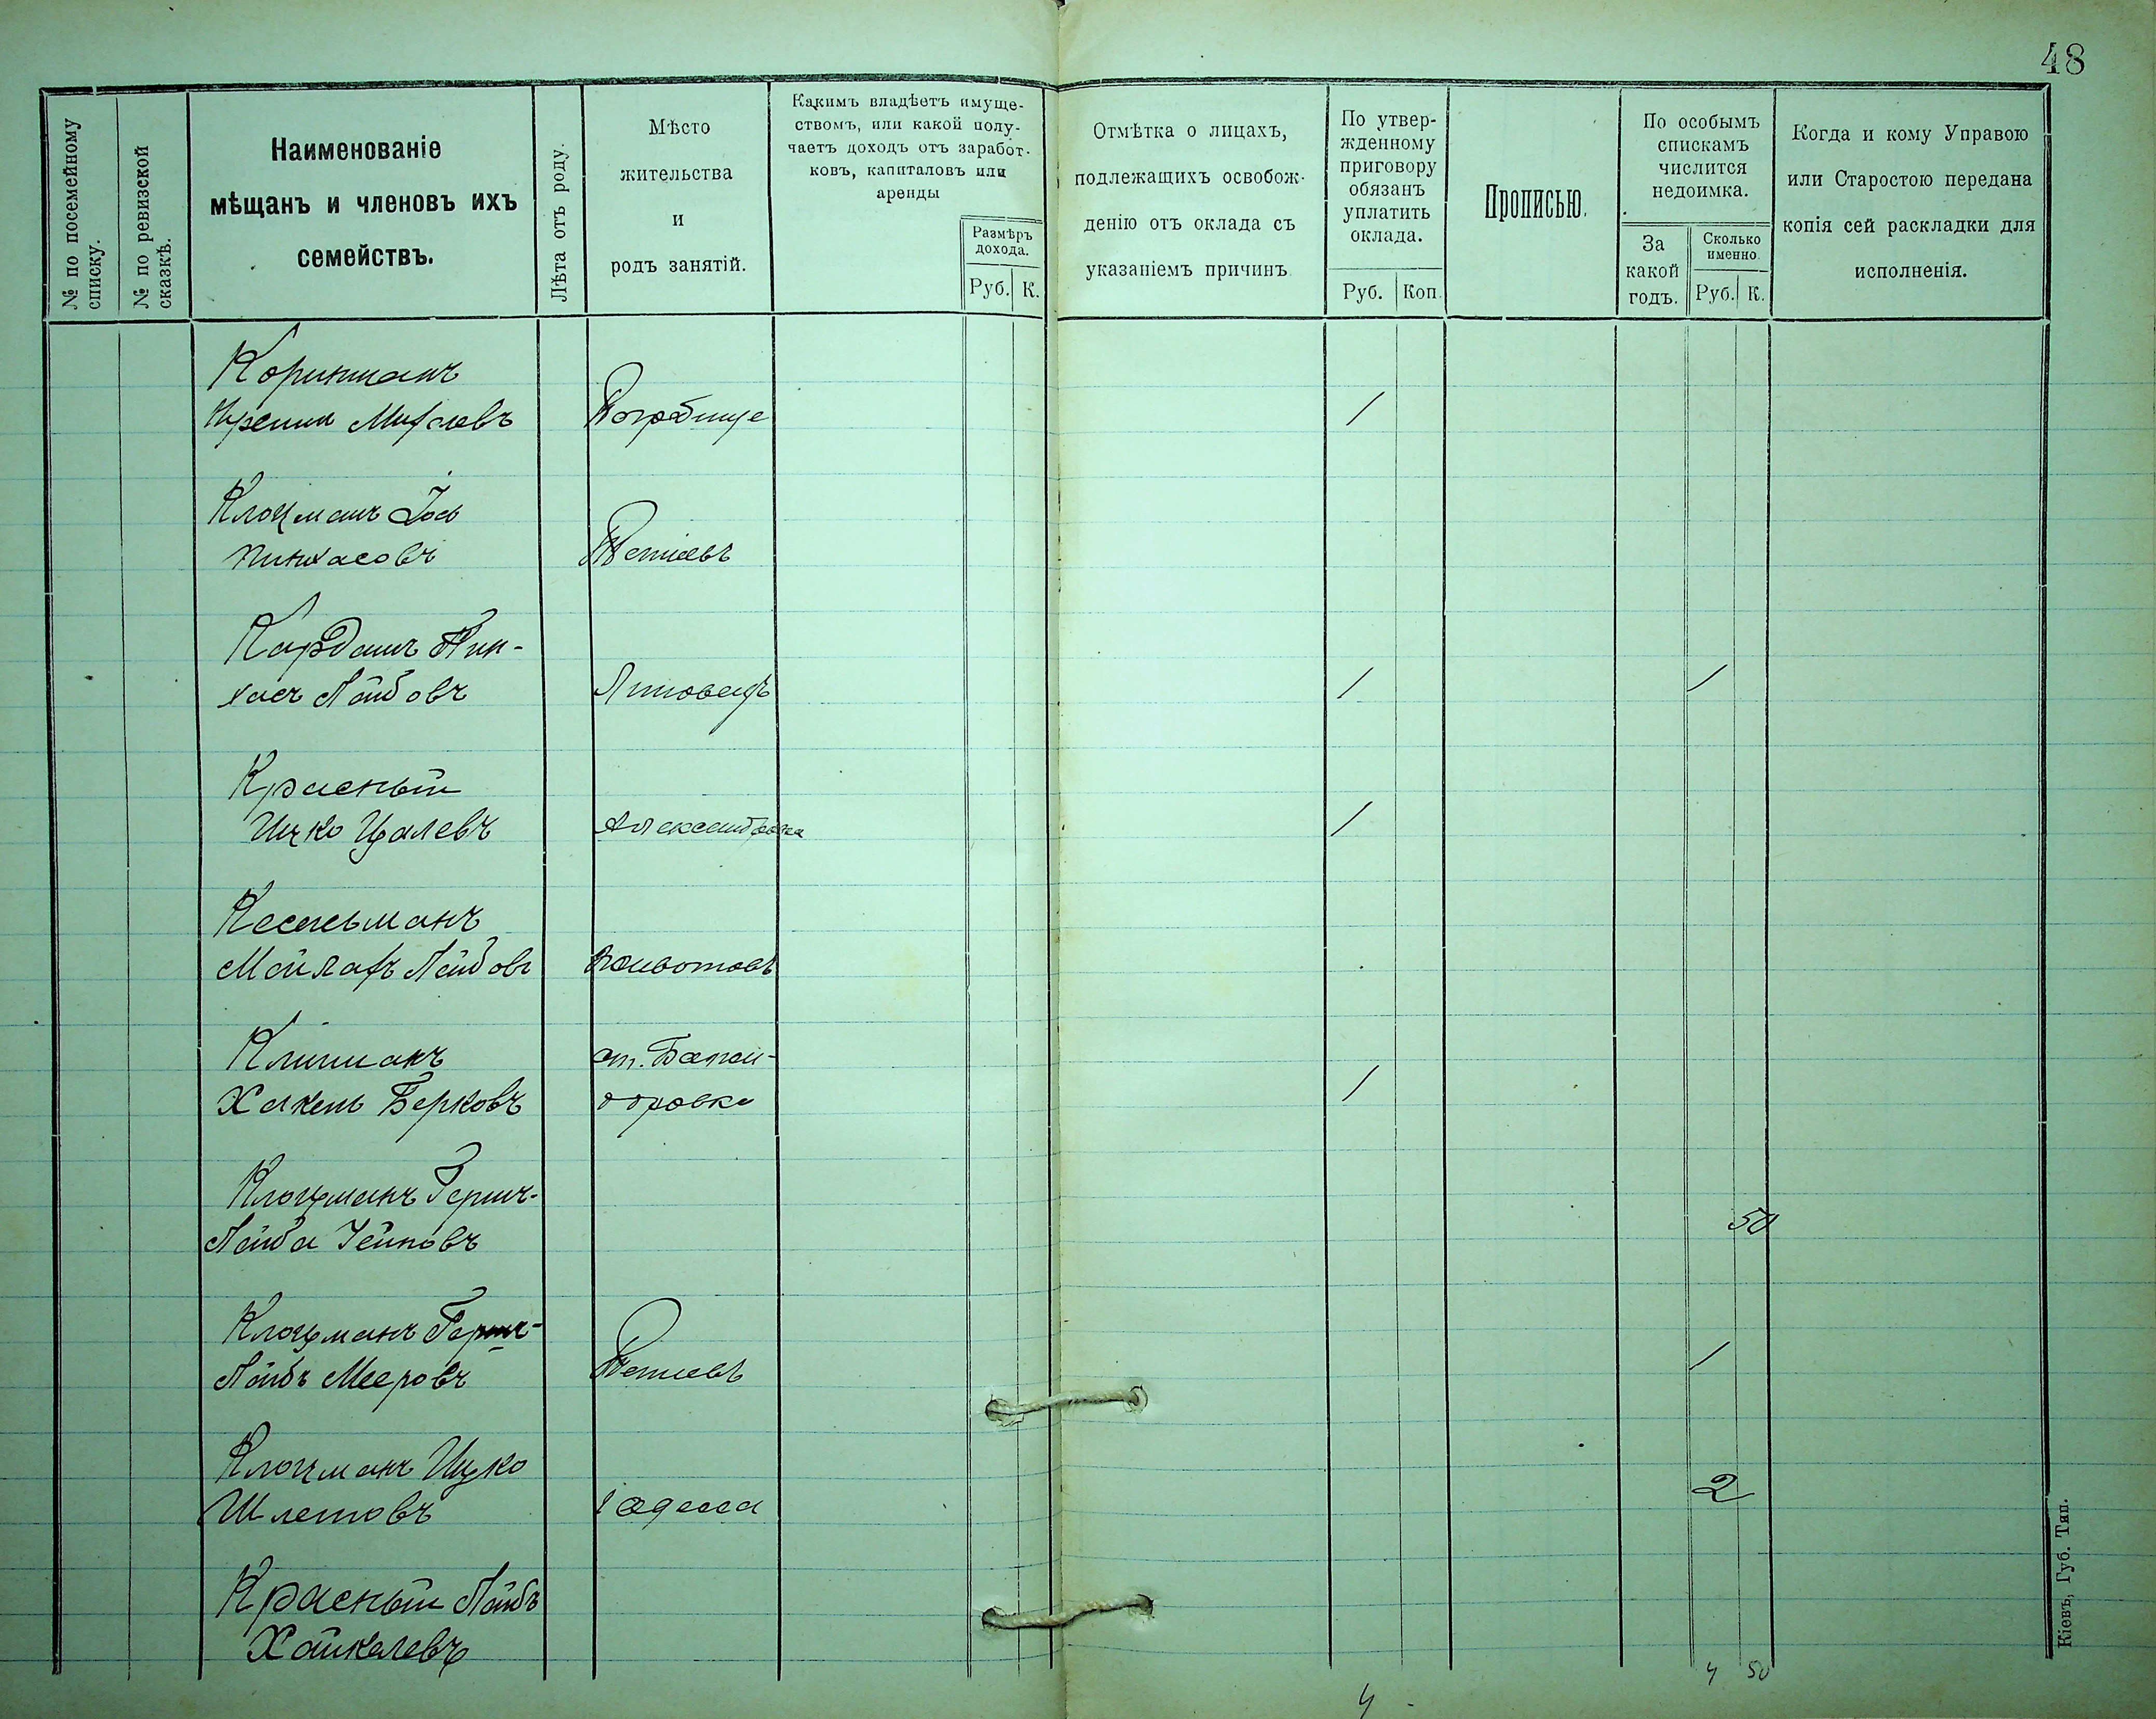 48
№ по посемейному
списку.
№ по ревизской
сказкѣ.
Наименованіе
мѣщанъ и членовъ ихъ
семействъ.
Лѣта отъ роду.
Мѣсто
жительства
и
родъ занятій.
Какимъ владѣетъ имуще-
ствомъ, или какой полу-
чаетъ доходъ отъ заработ-
ковъ, капиталовъ или
аренды
Размѣръ
дохода.
Руб. К.
Отмѣтка о лицахъ,
подлежащихъ освобож-
денію отъ оклада съ
указаніемъ причинъ
По утвер-
жденному
приговору
обязанъ
уплатить
оклада.
Руб. Коп.
Прописью.
По особымъ
спискамъ
числится
недоимка.
За
какой
годъ.
Сколько
именно.
Руб. К.
Когда и кому Управою
или Старостою передана
копія сей раскладки для
исполненія.
Погребище 1
Клоцманъ Іось
Пинхасовъ Тетіевъ
Карданъ Пин-
хасъ Лейбовъ Липовецъ 1 1
Красный
Ицко Цалевъ Александровка 1
Кесельманъ
Лейбовъ Животовъ
Клигманъ ст.
Берковъ 1
Клоцманъ Герш-
Лейба 50
Клоцманъ Герш-
Лейбъ Мееровъ Тетіевъ 1
Клоцманъ Ицко
Шлемовъ г Одесса 2
Красный Лейбъ
Хайкелевъ
4 - 4 50
Кіевъ, Губ. Тип.